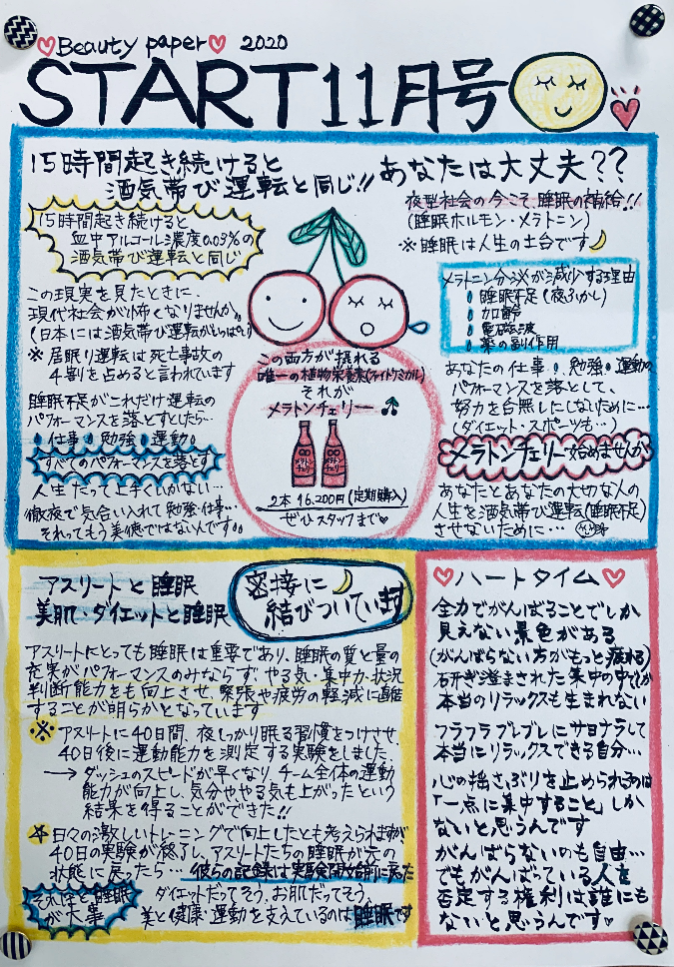 ♡Beauty paper♡ 2020
START11月号
15時間起き続けると
酒気帯び運転と同じ!! あなたは大丈夫??
15時間起き続けると
血中アルコール濃度0.03%の
酒気帯び運転と同じ
この現実を見たときに、
現代社会が怖くなりませんか。
(日本には酒気帯び運転がいっぱい)
※居眠り運転は死亡事故の
4割を占めると言われています
睡眠不足がこれだけ運転の
パフォーマンスを落とすとしたら…
仕事 勉強 運動
すべてのパフォーマンスを落とす
人生だって上手くいかない…
徹夜で気合い入れて勉強・仕事…
それってもう美徳ではないんです。
この両方が摂れる
唯一の植物栄養素(ファイトケミカル)
それが
メラトンチェリー
メラトンチェリー
メラトンチェリー
2本 16,200円(定期購入)
ぜひスタッフまで♡
夜型社会の今こそ、睡眠の補給!!
(睡眠ホルモン・メラトニン)
※睡眠は人生の土台です
メラトニン分泌が減少する理由
睡眠不足(夜ふかし)
加齢
電磁波
薬の副作用
あなたの仕事・勉強・運動の
パフォーマンスを落として、
努力を台無しにしないために…
(ダイエット・スポーツも…)
メラトンチェリー始めませんか
あなたとあなたの大切な人の
人生を酒気帯び運転(睡眠不足)
させないために…
アスリートと睡眠
美肌・ダイエットと睡眠
密接に
結びついています
アスリートにとっても睡眠は重要であり、睡眠の質と量の
充実がパフォーマンスのみならず やる気・集中力・状況
判断能力をも向上させ、緊張や疲労の軽減に直結
することが明らかとなっています
※アスリートに40日間、夜しっかり眠る習慣をつけさせ、
40日後に運動能力を測定する実験をしました
→ダッシュのスピードが早くなり、チーム全体の運動
能力が向上し、気分ややる気も上がったという
結果を得ることができた!!
☆日々の激しいトレーニングで向上したとも考えられますが
40日の実験が終了し、アスリートたちの睡眠が元の
状態に戻ったら…彼らの記録は実験開始前に戻った
それほど睡眠
が大事
ダイエットだってそう、お肌だってそう、
美と健康・運動を支えているのは睡眠です
♡ハートタイム♡
全力でがんばることでしか
見えない景色がある
(がんばらない方がもっと疲れる)
研ぎ澄まされた集中の中でしか
本当のリラックスも生まれない
フラフラブレブレにサヨナラして
本当にリラックスできる自分…
心の揺さぶりを止められるのは
「一点に集中すること」しか
ないと思うんです
がんばらないのも自由…
でもがんばっている人を
否定する権利は誰にも
ないと思うんです♡